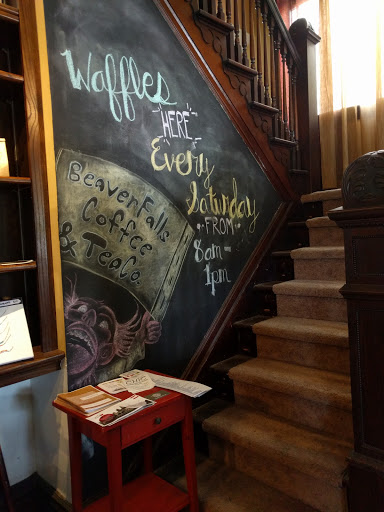 Waffles
HERE
Every
Saturday
FROM
8am -
1pm
Beaver Falls
Coffee
& Tea Co.